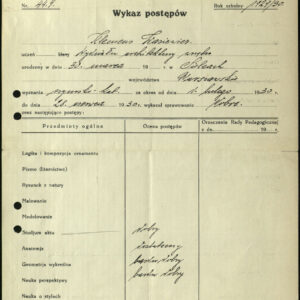 Nr. 449.
Rok szkolny 1929/30
Wykaz postępów
Klemens
uczeń klasy Wydziału architektury wnętrz
urodzony w dniu 30 marca
województwa
wyznania rzymsko-kat. od dnia 1. lutego 1930.
do dnia 21. czerwca 1930. wykazał sprawowanie dobre
oraz następujące postępy:
Przedmioty ogólne
Ocena postępów
Orzeczenie Rady Pedagogicznej
z dn. 19 r.
Logika i kompozycja ornamentu
Pismo (liternictwo)
Rysunek z natury
Malowanie
Modelowanie
Studjum aktu dobry
Anatomja dostateczny
Geometrja wykreślna bardzo dobry
Nauka perspektywy bardzo dobry
Nauka o stylach